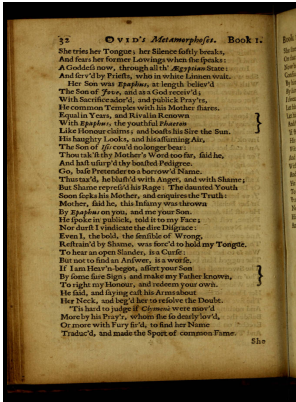 32 OVID's Metamorphoses. Book 1.
She tries her Tongue; her Silence softly breaks,
And fears her former Lowings when she speaks:
A Goddess now, through all th' Ægyptian State:
And serv'd by Priests, who in white Linnen wait.
Her Son was Epaphus, at length believ'd
The Son of Jove, and as a God receiv'd;
With Sacrifice ador'd, and publick Pray'rs,
He common Temples with his Mother shares.
Equal in Years, and Rival in Renown
With Epaphus, the youthful Phaeton
Like Honour claims; and boasts his Sire the Sun.
His haughty Looks, and his assuming Air,
The Son of Isis cou'd no longer bear:
Thou tak'st thy Mother's Word too far, said he,
And hast usurp'd thy boasted Pedigree.
Go, base Pretender to a borrow'd Name.
Thus tax'd, he blush'd with Anger, and with Shame;
But Shame repress'd his Rage: The daunted Youth
Soon seeks his Mother, and enquires the Truth:
Mother, said he, this Infamy was thrown
By Epaphus on you, and me your Son.
He spoke in publick, told it to my Face;
Nor durst I vindicate the dire Disgrace:
Even I, the bold, the sensible of Wrong,
Restrain'd by Shame, was forc'd to hold my Tongue.
To hear an open Slander, is a Curse:
But not to find an Answer, is a worse.
If I am Heav'n-begot, assert your Son
By some sure Sign; and make my Father known,
To right my Honour, and redeem your own.
He said, and saying cast his Arms about
Her Neck, and beg'd her to resolve the Doubt.
'Tis hard to judge if Clymenè were mov'd
More by his Pray'r, whom she so dearly lov'd,
Or more with Fury fir'd, to find her Name
Traduc'd, and made the Sport of common Fame.
She